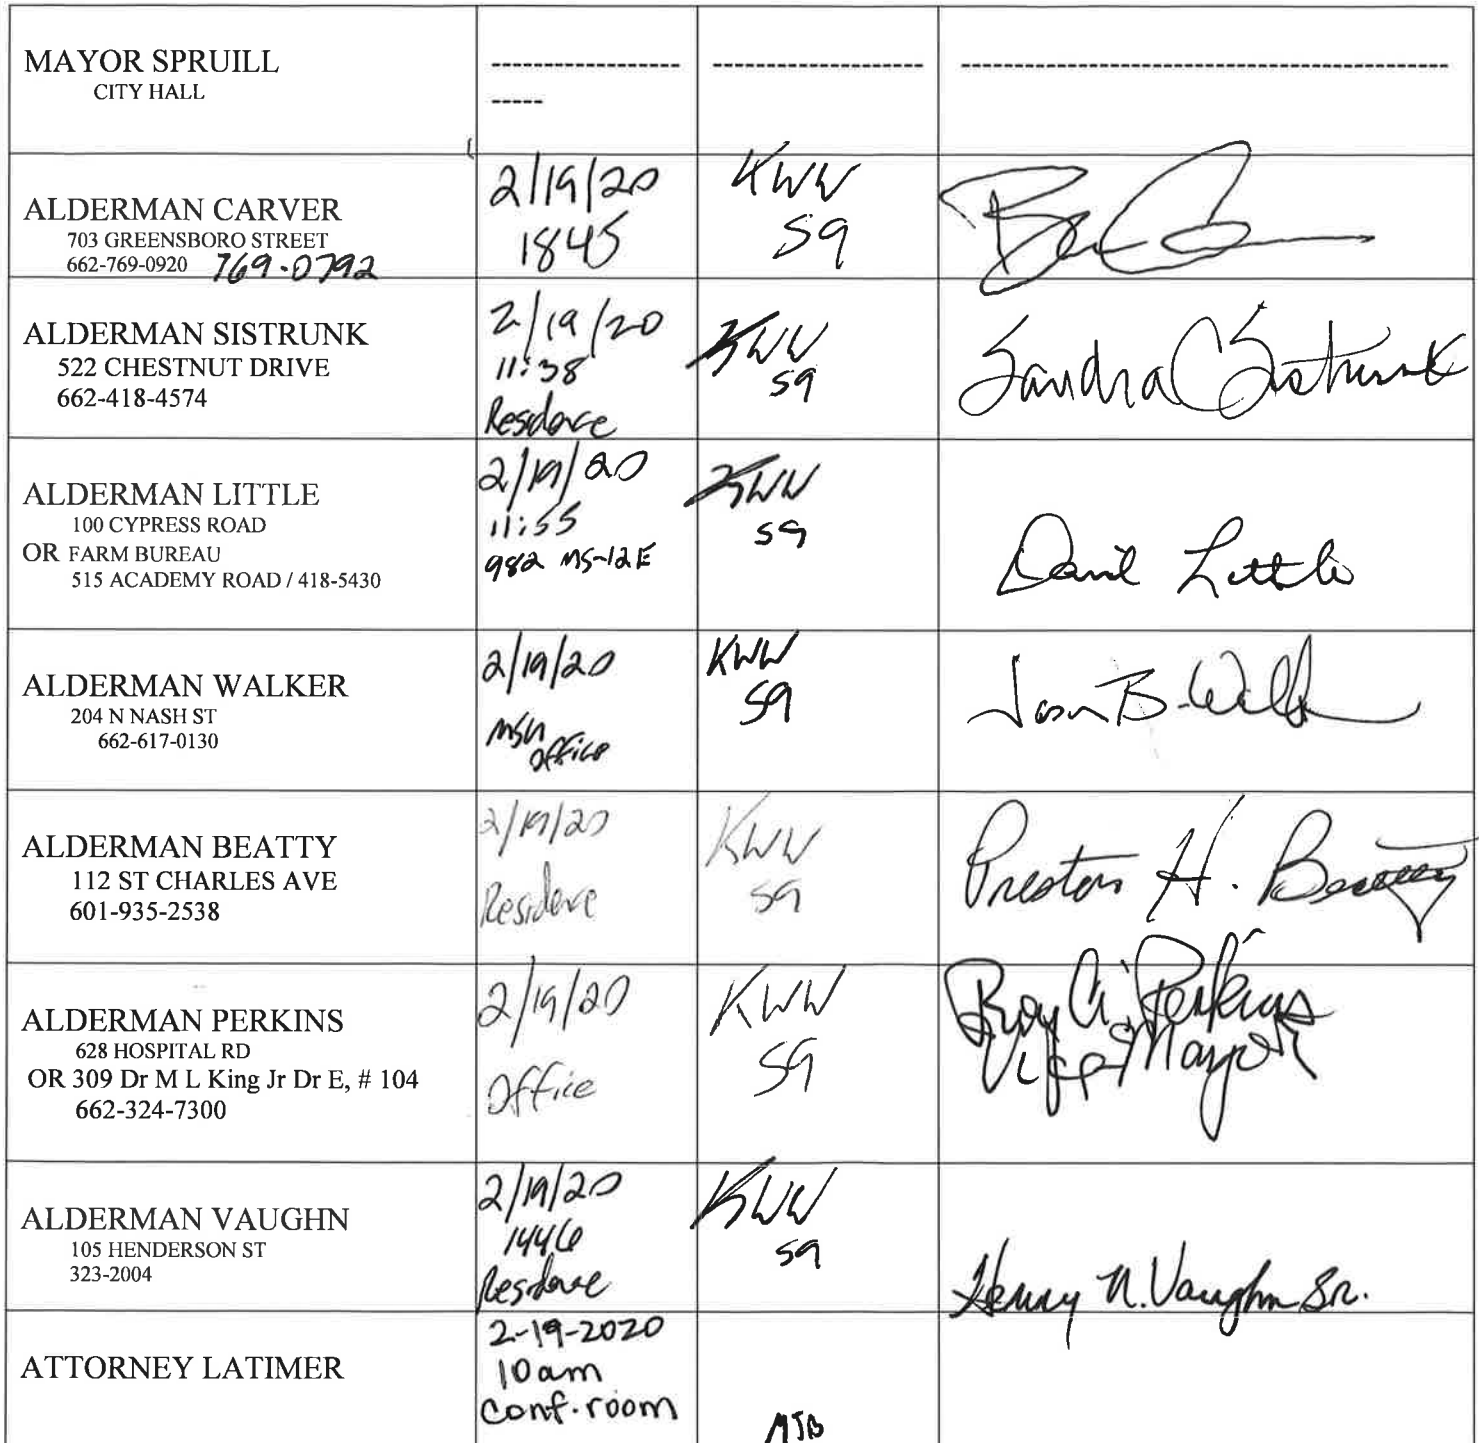 MAYOR SPRUILL
CITY HALL
------------------ -------------------- -----------------------------------------------
-----
ALDERMAN CARVER
703 GREENSBORO STREET
662-769-0920 769-0792
2/19/20
1845
KWW
59
ALDERMAN SISTRUNK
522 CHESTNUT DRIVE
662-418-4574
2/19/20
11:38
Residence
KWW
59
Sandra C Sistrunk
ALDERMAN LITTLE
100 CYPRESS ROAD
OR FARM BUREAU
515 ACADEMY ROAD / 418-5430
2/19/20
11:55
982 MS-12 E
KWW
59
David Little
ALDERMAN WALKER
204 N NASH ST
662-617-0130
2/19/20
MSU
office
KWW
59
Jason B. Walker
ALDERMAN BEATTY
112 ST CHARLES AVE
601-935-2538
2/19/20
Residence
KWW
59
Preston H. Beatty
ALDERMAN PERKINS
628 HOSPITAL RD
OR 309 Dr M L King Jr Dr E, # 104
662-324-7300
2/19/20
Office
KWW
59
Roy A. Perkins
Vice Mayor
ALDERMAN VAUGHN
105 HENDERSON ST
323-2004
2/19/20
1446
Residence
KWW
59
Henry N. Vaughn Sr.
ATTORNEY LATIMER
2-19-2020
10am
Conf. room
MJB